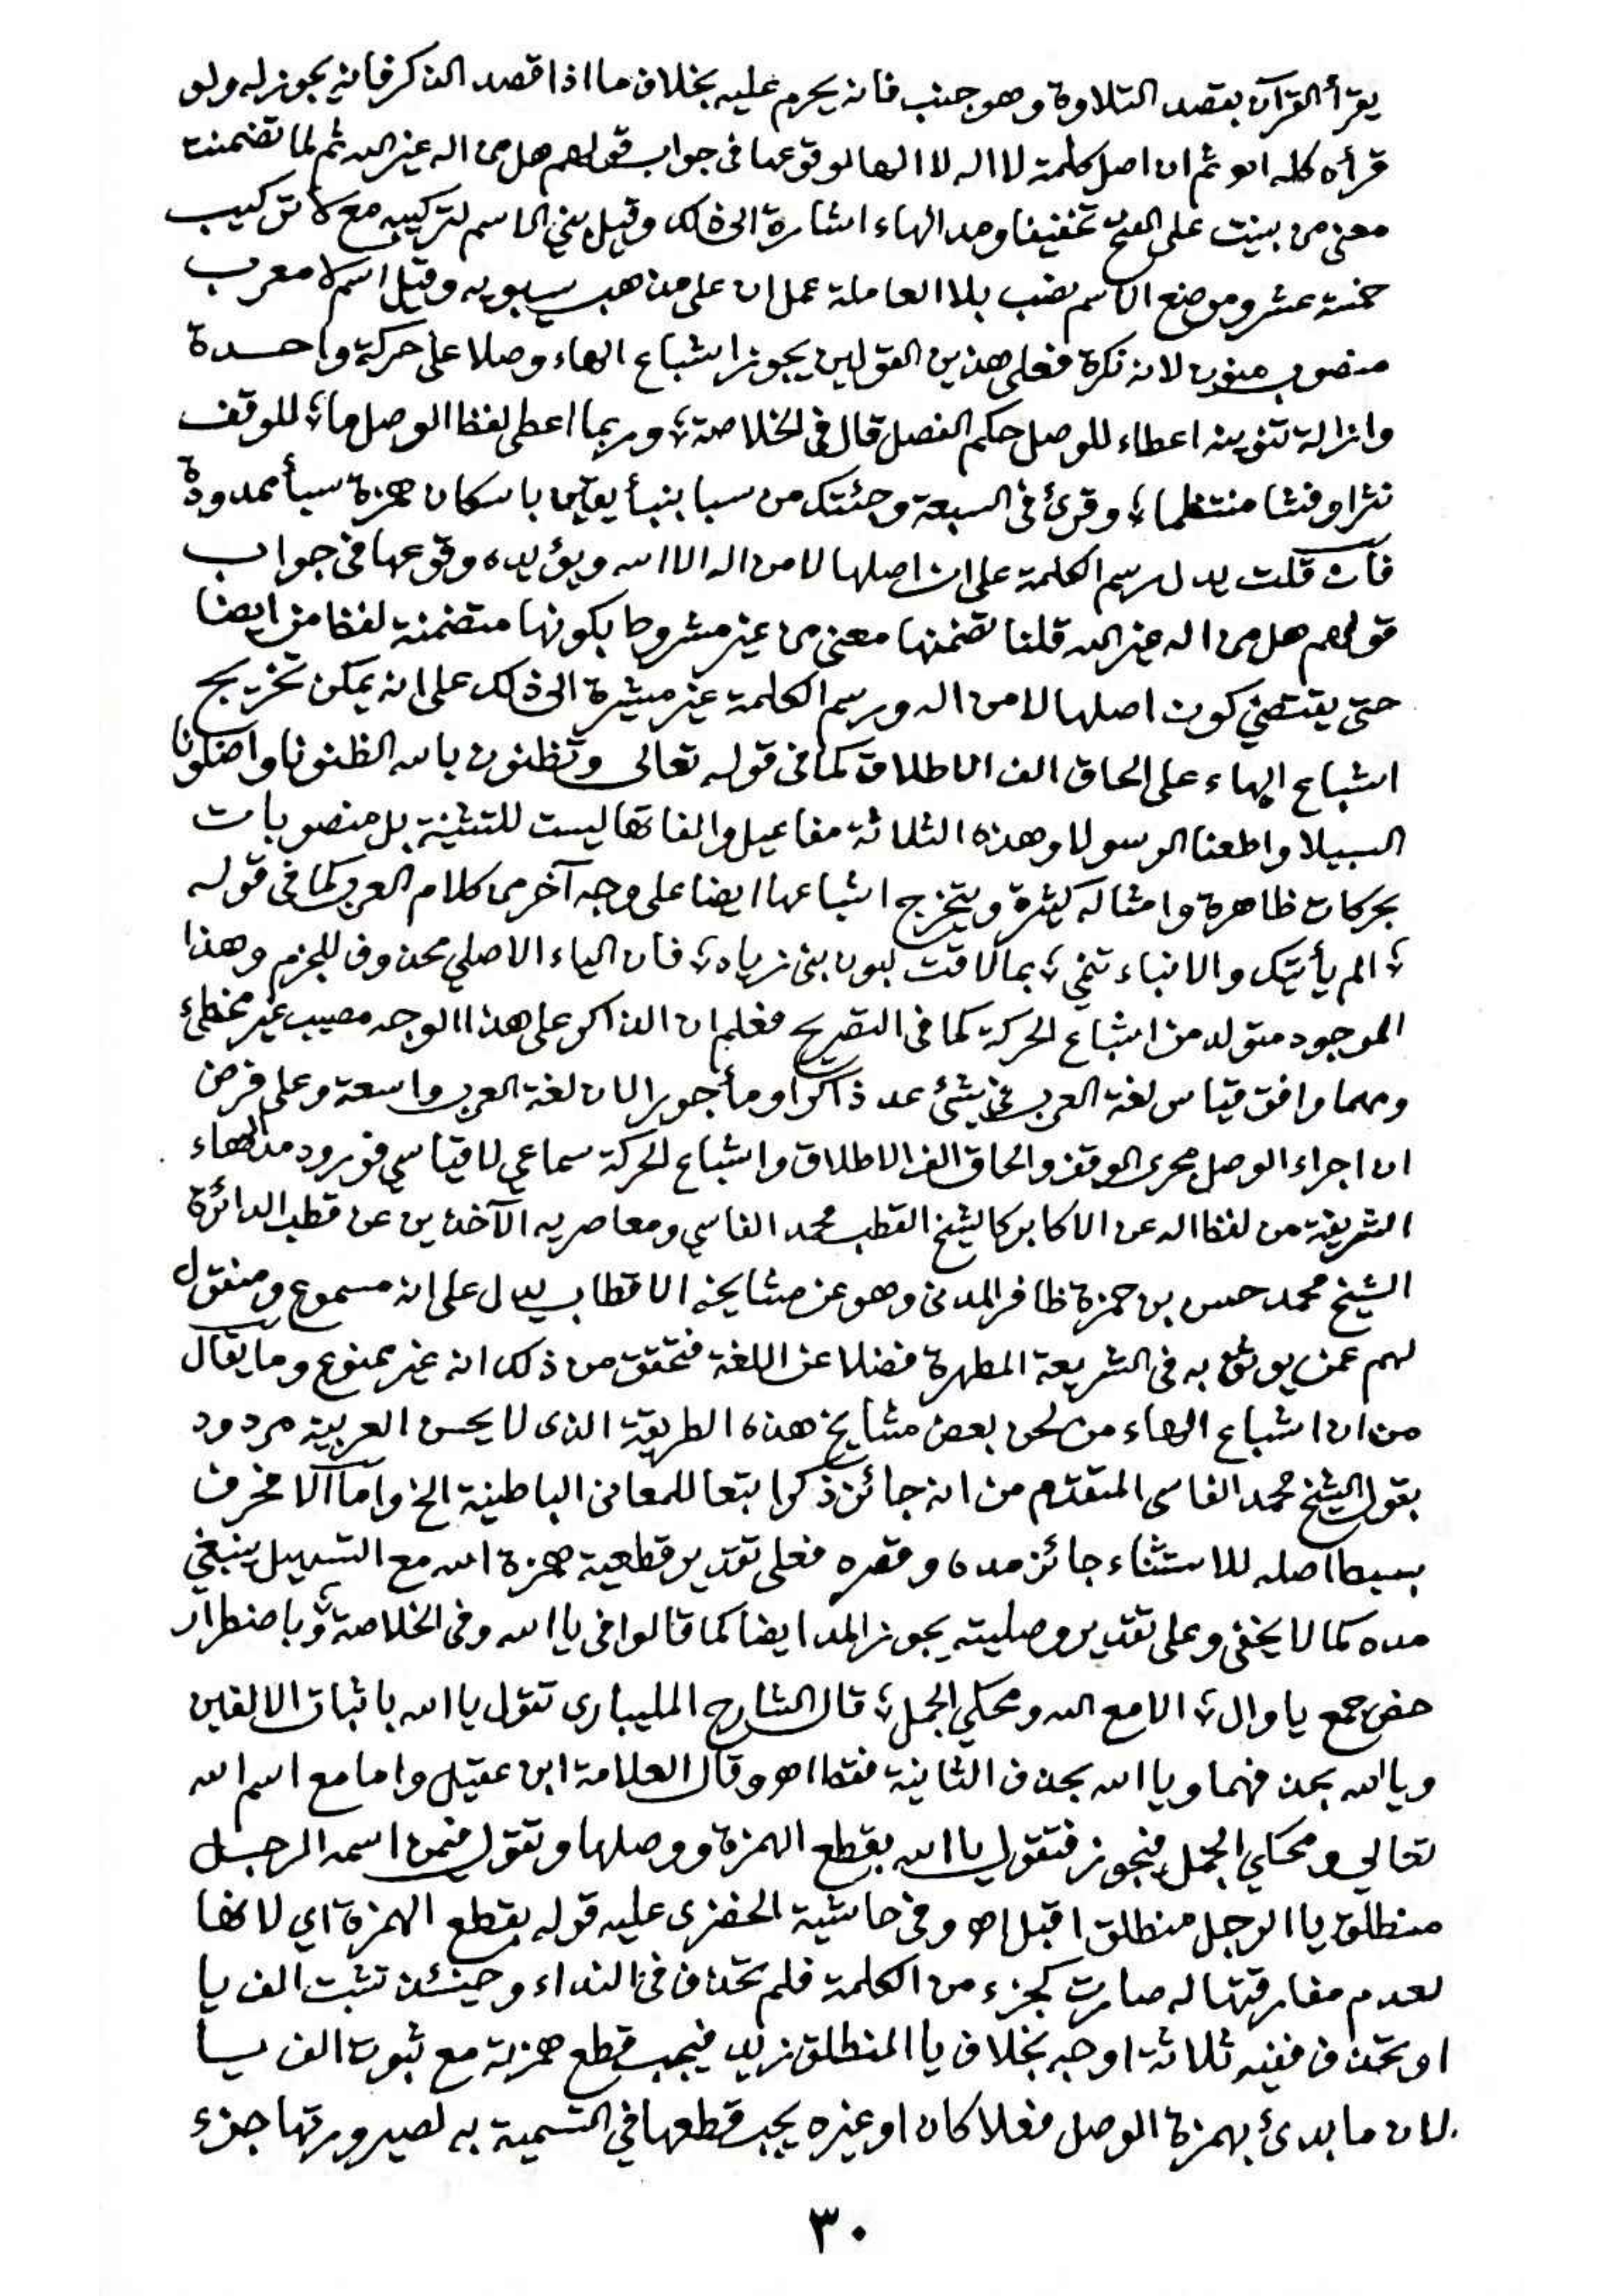 يقرأ القرآن بقصد التلاوة وهو جنب فانه يحرم عليه بخلاف ما اذا قصد الذكر فانه يجوز له ولو
قرأه كله اهو ثم ان اصل كلمة لا اله لا الها لوقوعها فى جواب قولهم هل من اله غير الله ثم لما تضمنت
معنى من بنيت على الفتح تخفيفا ومد الهاء اشارة الى ذلك وقيل بني الاسم لتركيبه مع لا تركيب
خمسة عشر وموضع الاسم نصب بلا العاملة عمل ان على مذهب سيبويه وقيل اسم لا معرب
منصوب منون لانه نكرة فعلى هذين القولين يجوز اشباع الهاء وصلا على حركة واحدة
وازالة تنوينه اعطاء للوصل حكم الفصل قال فى الخلاصة ؛ وربما اعطى لفظ الوصل ما ؛ للوقف
نثرا وفشا منتظما ؛ وقرئ فى السبعة وجئتك من سبا بنبأ يقين باسكان همزة سبأ ممدودة
فان قلت يدل رسم الكلمة على ان اصلها لا من اله الا الله ويؤيده وقوعها فى جواب
قولهم هل من اله غير الله قلنا تضمنها معنى من غير مشروط بكونها متضمنة لفظ من ايضا
حتى يقتضي كون اصلها لا من اله ورسم الكلمة غير مشيرة الى ذلك على انه يمكن تخريج
اشباع الهاء على الحاق الف الاطلاق كما فى قوله تعالى وتظنون بالله الظنونا واضلونا
السبيلا واطعنا الرسولا وهذه الثلاثة مفاعيل والفاتها ليست للتثنية بل منصوبات
بحركات ظاهرة وامثاله كثيرة ويتخرج اشباعها ايضا على وجه آخر من كلام العرب كما فى قوله
؛ الم يأتيك والانباء تنمي ؛ بما لاقت لبون بنى زياد ؛ فان الياء الاصلي محذوف للجزم وهذا
الموجود متولد من اشباع الحركة كما فى التصريح فعلم ان الذاكر على هذا الوجه مصيب غير مخطئ
ومهما وافق قياس لغة العرب فى شئ عد ذاكرا ومأجورا لان لغة العرب واسعة وعلى فرض
ان اجراء الوصل مجرى الوقف والحاق الف الاطلاق واشباع الحركة سماعي لا قياسي فورود مد الهاء
الشريفة من لفظ اله عن الاكابر كالشيخ القطب محمد الفاسي ومعاصريه الآخذين عن قطب الدائرة
الشيخ محمد حسن بن حمزة ظافر المدنى وهو عن مشايخه الاقطاب يدل على انه مسموع ومنقول
لهم عمن يوثق به فى الشريعة المطهرة فضلا عن اللغة فتحقق من ذلك انه غير ممنوع وما يقال
من ان اشباع الهاء من لحن بعض مشايخ هذه الطريقة الذى لا يحسن العربية مردود
بقول الشيخ محمد الفاسى المتقدم من انه جائز ذكرا بتعا للمعانى الباطنية الخ واما الا فحرف
بسيط اصله للاستثناء جائز مده وقصره فعلى تقدير قطعية همزة الله مع التسهيل ينبغي
مده كما لا يخفى وعلى تقدير وصليته يجوز المد ايضا كما قالوا فى يا الله وفى الخلاصة ؛ وباضطرار
خص جمع يا وال ؛ الا مع الله ومحكي الجمل ؛ قال الشارح المليبارى تقول يا الله باثبات الالفين
ويالله بحذفهما ويا الله بحذف الثانية فقط اهو وقال العلامة ابن عقيل واما مع اسم الله
تعالى ومحكي الجمل فيجوز فتقول يا الله بقطع الهمزة ووصلها وتقول فيمن اسمه الرجل
منطلق يا الرجل منطلق اقبل اهو وفى حاشية الخضرى عليه قوله بقطع الهمزة اي لانها
لعدم مفارقتها له صارت كجزء من الكلمة فلم تحذف فى النداء وحينئذ تثبت الف يا
او تحذف ففيه ثلاثة اوجه بخلاف يا المنطلق زيد فيجب قطع همزته مع ثبوت الف يا
لان ما بدئ بهمزة الوصل فعلا كان او غيره يجب قطعها في التسمية به لصيرورتها جزء
٣٠